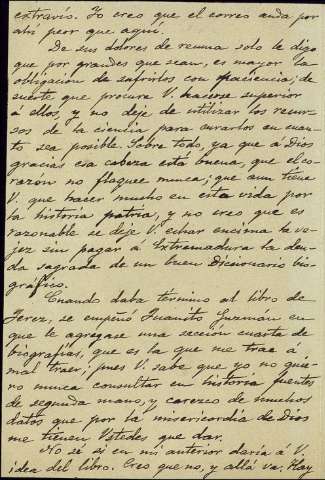 extravío. Yo creo que el correo anda por
ahí peor que aquí.
De sus dolores de reuma solo le digo
que por grandes que sean, es mayor la
obligacion de sufrirlos con paciencia; de
suerte que procure V. hacerse superior
á ellos, y no deje de utilizar los recur-
sos de la ciencia para curarlos en cuan-
to sea posible. Sobre todo, ya que á Dios
gracias esa cabeza está buena, que el co-
razon no flaquee nunca; que aun tiene
V. que hacer mucho en esta vida por
la historia patria, y no creo que es
razonable se deje V. echar encima la ve-
jez sin pagar á Extremadura la deu-
da sagrada de un buen Diccionario bio-
gráfico.
Cuando daba término al libro de
Jerez, se empeñó Juanito Guzmán en
que le agregase una sección cuarta de
biografías, que es la que me trae á
mal traer; pues V. sabe que yo no quie-
ro nunca consultar en historia fuentes
de segunda mano, y carezco de muchos
datos que por la misericordia de Dios
me tienen Ustedes que dar.
No sé si en mi anterior daría á V.
idea del libro. Creo que no, y allá va. Hay